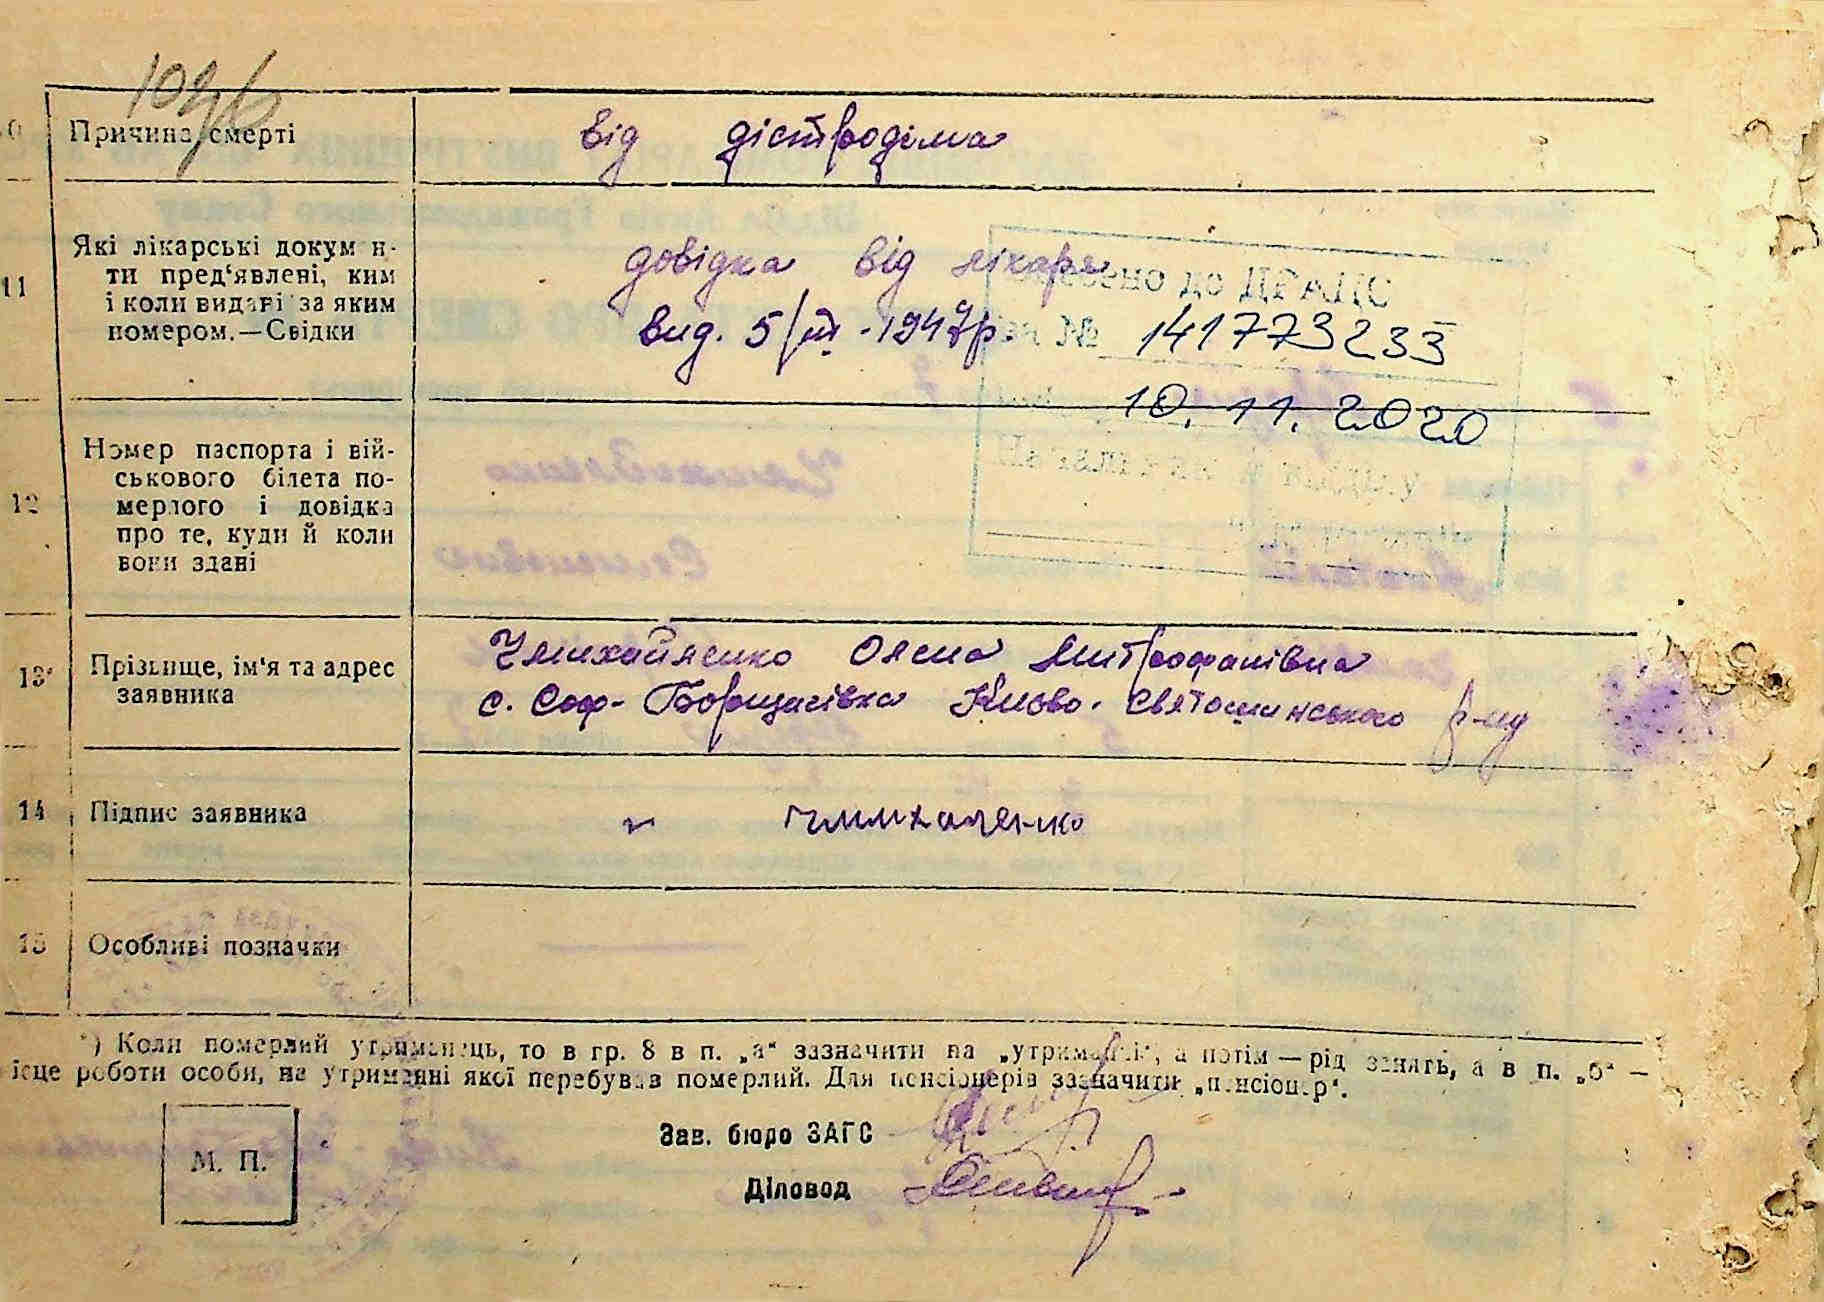 10
Причина смерті
від дістродіма
11
Які лікарські докум н-
ти пред'явлені, ким
і коли видані за яким
номером.—Свідки
довідка від лікаря
вид. 5/III-1947р.
внесено до ДРАЦС
№ 141773233
10.11.2020
Начальник відділу
12
Номер паспорта і вій-
ськового білета по-
мерлого і довідка
про те, куди й коли
вони здані
13
Прізвище, ім'я та адрес
заявника
Олена Митрофанівна
с. Соф-Борщагівка Києво-Святошинського р-ну
14
Підпис заявника
15
Особливі позначки
*) Коли померлий утриманець, то в гр. 8 в п. „а“ зазначити на „утриманні“, а потім — рід занять, а в п. „б“ —
ісце роботи особи, на утриманні якої перебував померлий. Для пенсіонерів зазначити „пенсіонер“.
М. П.
Зав. бюро ЗАГС
Діловод